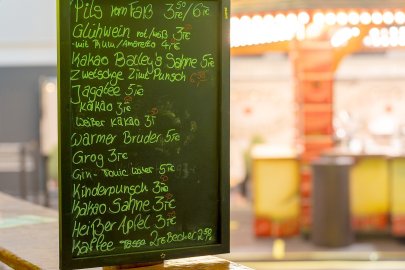 Pils vom Faß 3,50/6,-€
Glühwein rot/weiß 3,-€
mit Rum/Amaretto 4,-€
Kakao Bailey's Sahne 5,-€
Zwetschge Zimt Punsch
Jagatee 5,-€
Kakao 3,-€
Weißer Kakao 3,-
Warmer Bruder 5,-€
Grog 3,-€
Gin-Tonic 5,-€
Kinderpunsch 3,-€
Kakao Sahne 3,-€
Heißer Apfel 3,-€
Kaffee Tasse 2,-€ Becher 2,50